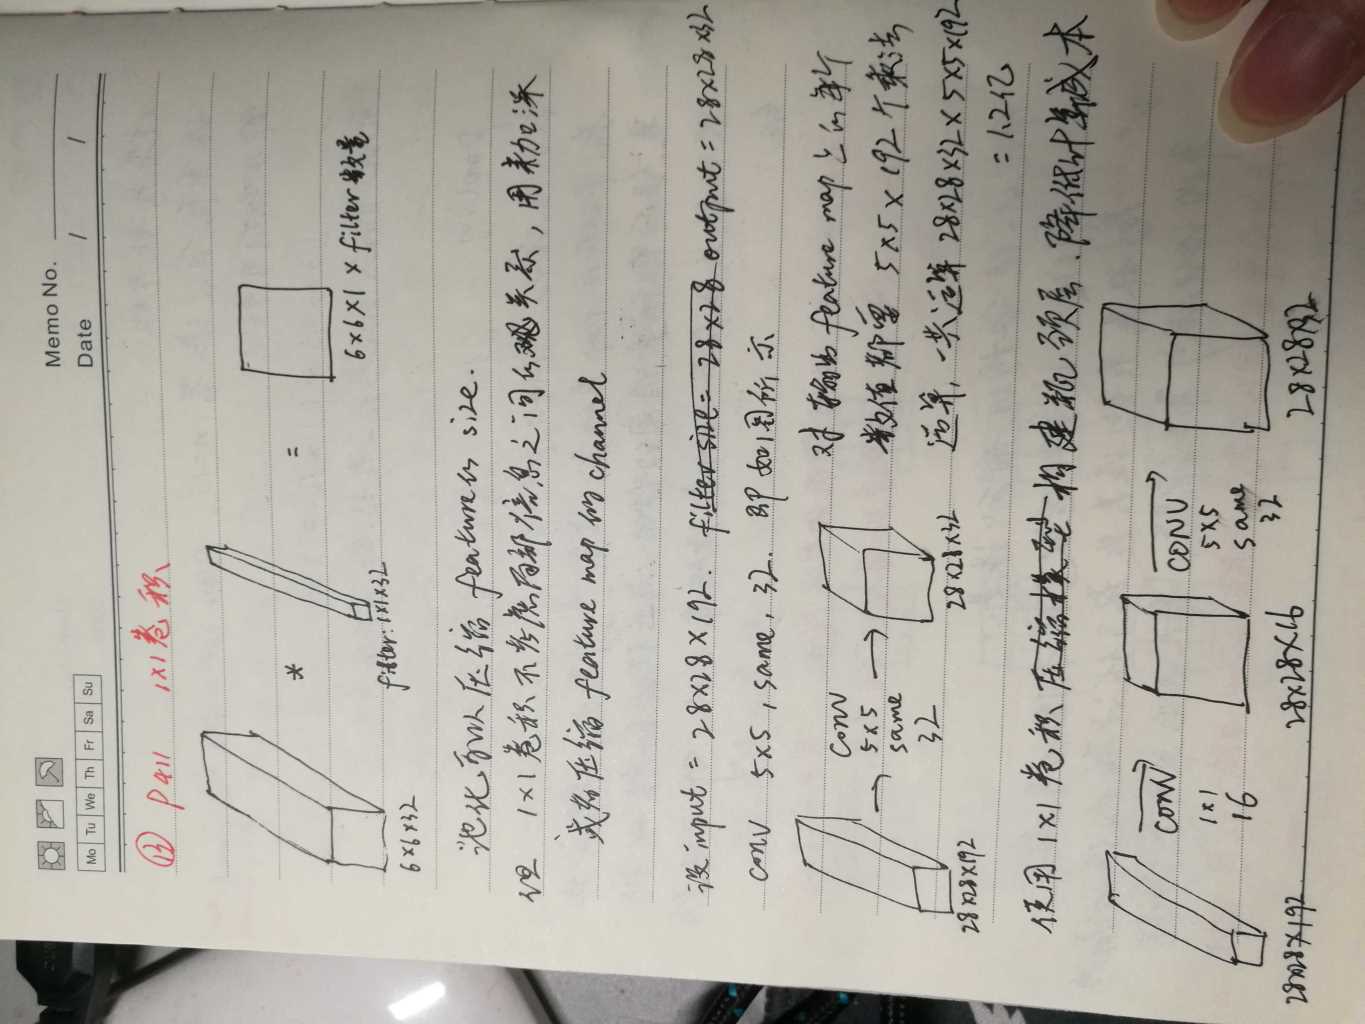 Memo No.
Date / /
Mo Tu We Th Fr Sa Su
⑬ P411 1x1卷积
* =
6x6x32
filter: 1x1x32
6x6x1 x filter数量
池化可以压缩 feature的 size.
但 1x1卷积不考虑局部信息之间的关系，用来加深
或者压缩 feature map 的 channel
设 input = 28x28x192. filter size = 28x28 output = 28x28x32
conv 5x5, same, 32. 即如图所示
CONV
5x5
same
32
28x28x192
28x28x32
对输出 feature map 上的每个
数值都要 5x5x192个乘法
运算, 一共运算 28x28x32x5x5x192
= 1.2亿
使用 1x1卷积压缩模型构建瓶颈层.降低计算成本
CONV
1x1
16
CONV
5x5
same
32
28x28x192
28x28x16
28x28x32